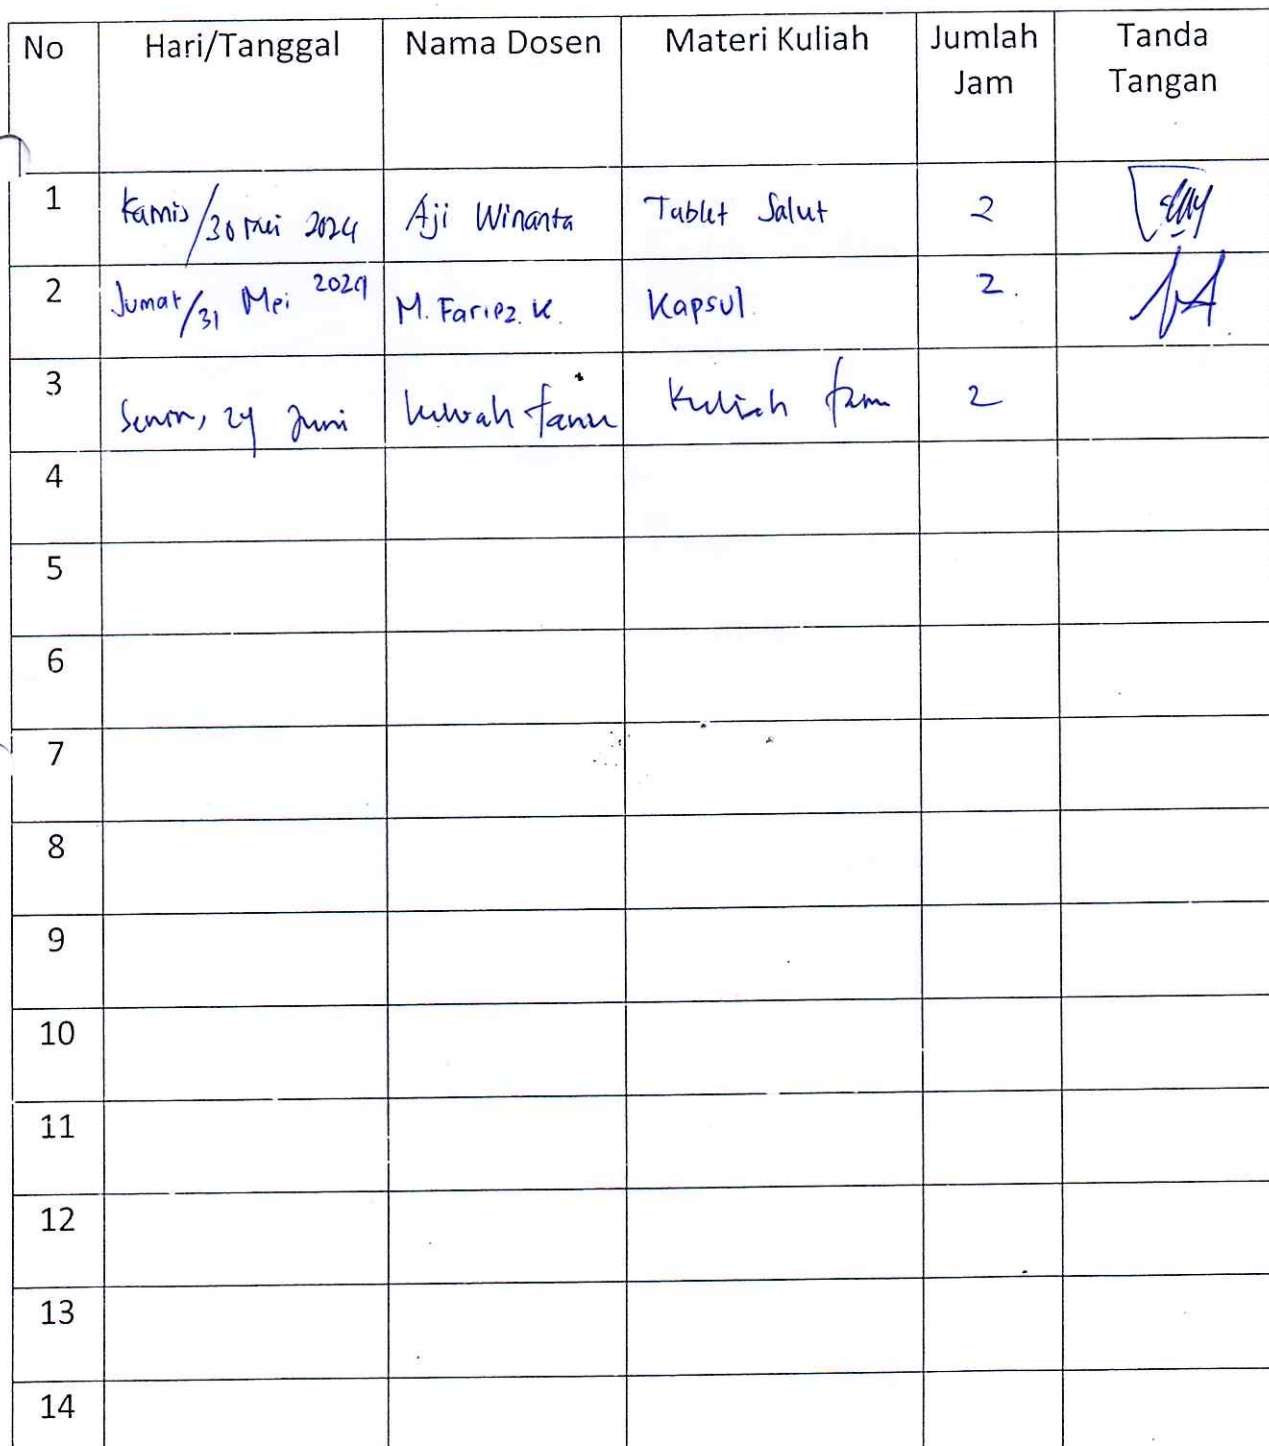 No Hari/Tanggal Nama Dosen Materi Kuliah Jumlah Jam Tanda Tangan
1 Kamis/30 Mei 2024 Aji Winanta Tablet Salut 2
2 Jumat/31 Mei 2024 M. Fariez. K. Kapsul. 2.
3 Senin, 24 Juni Kuliah tamu Kuliah tamu 2
4
5
6
7
8
9
10
11
12
13
14